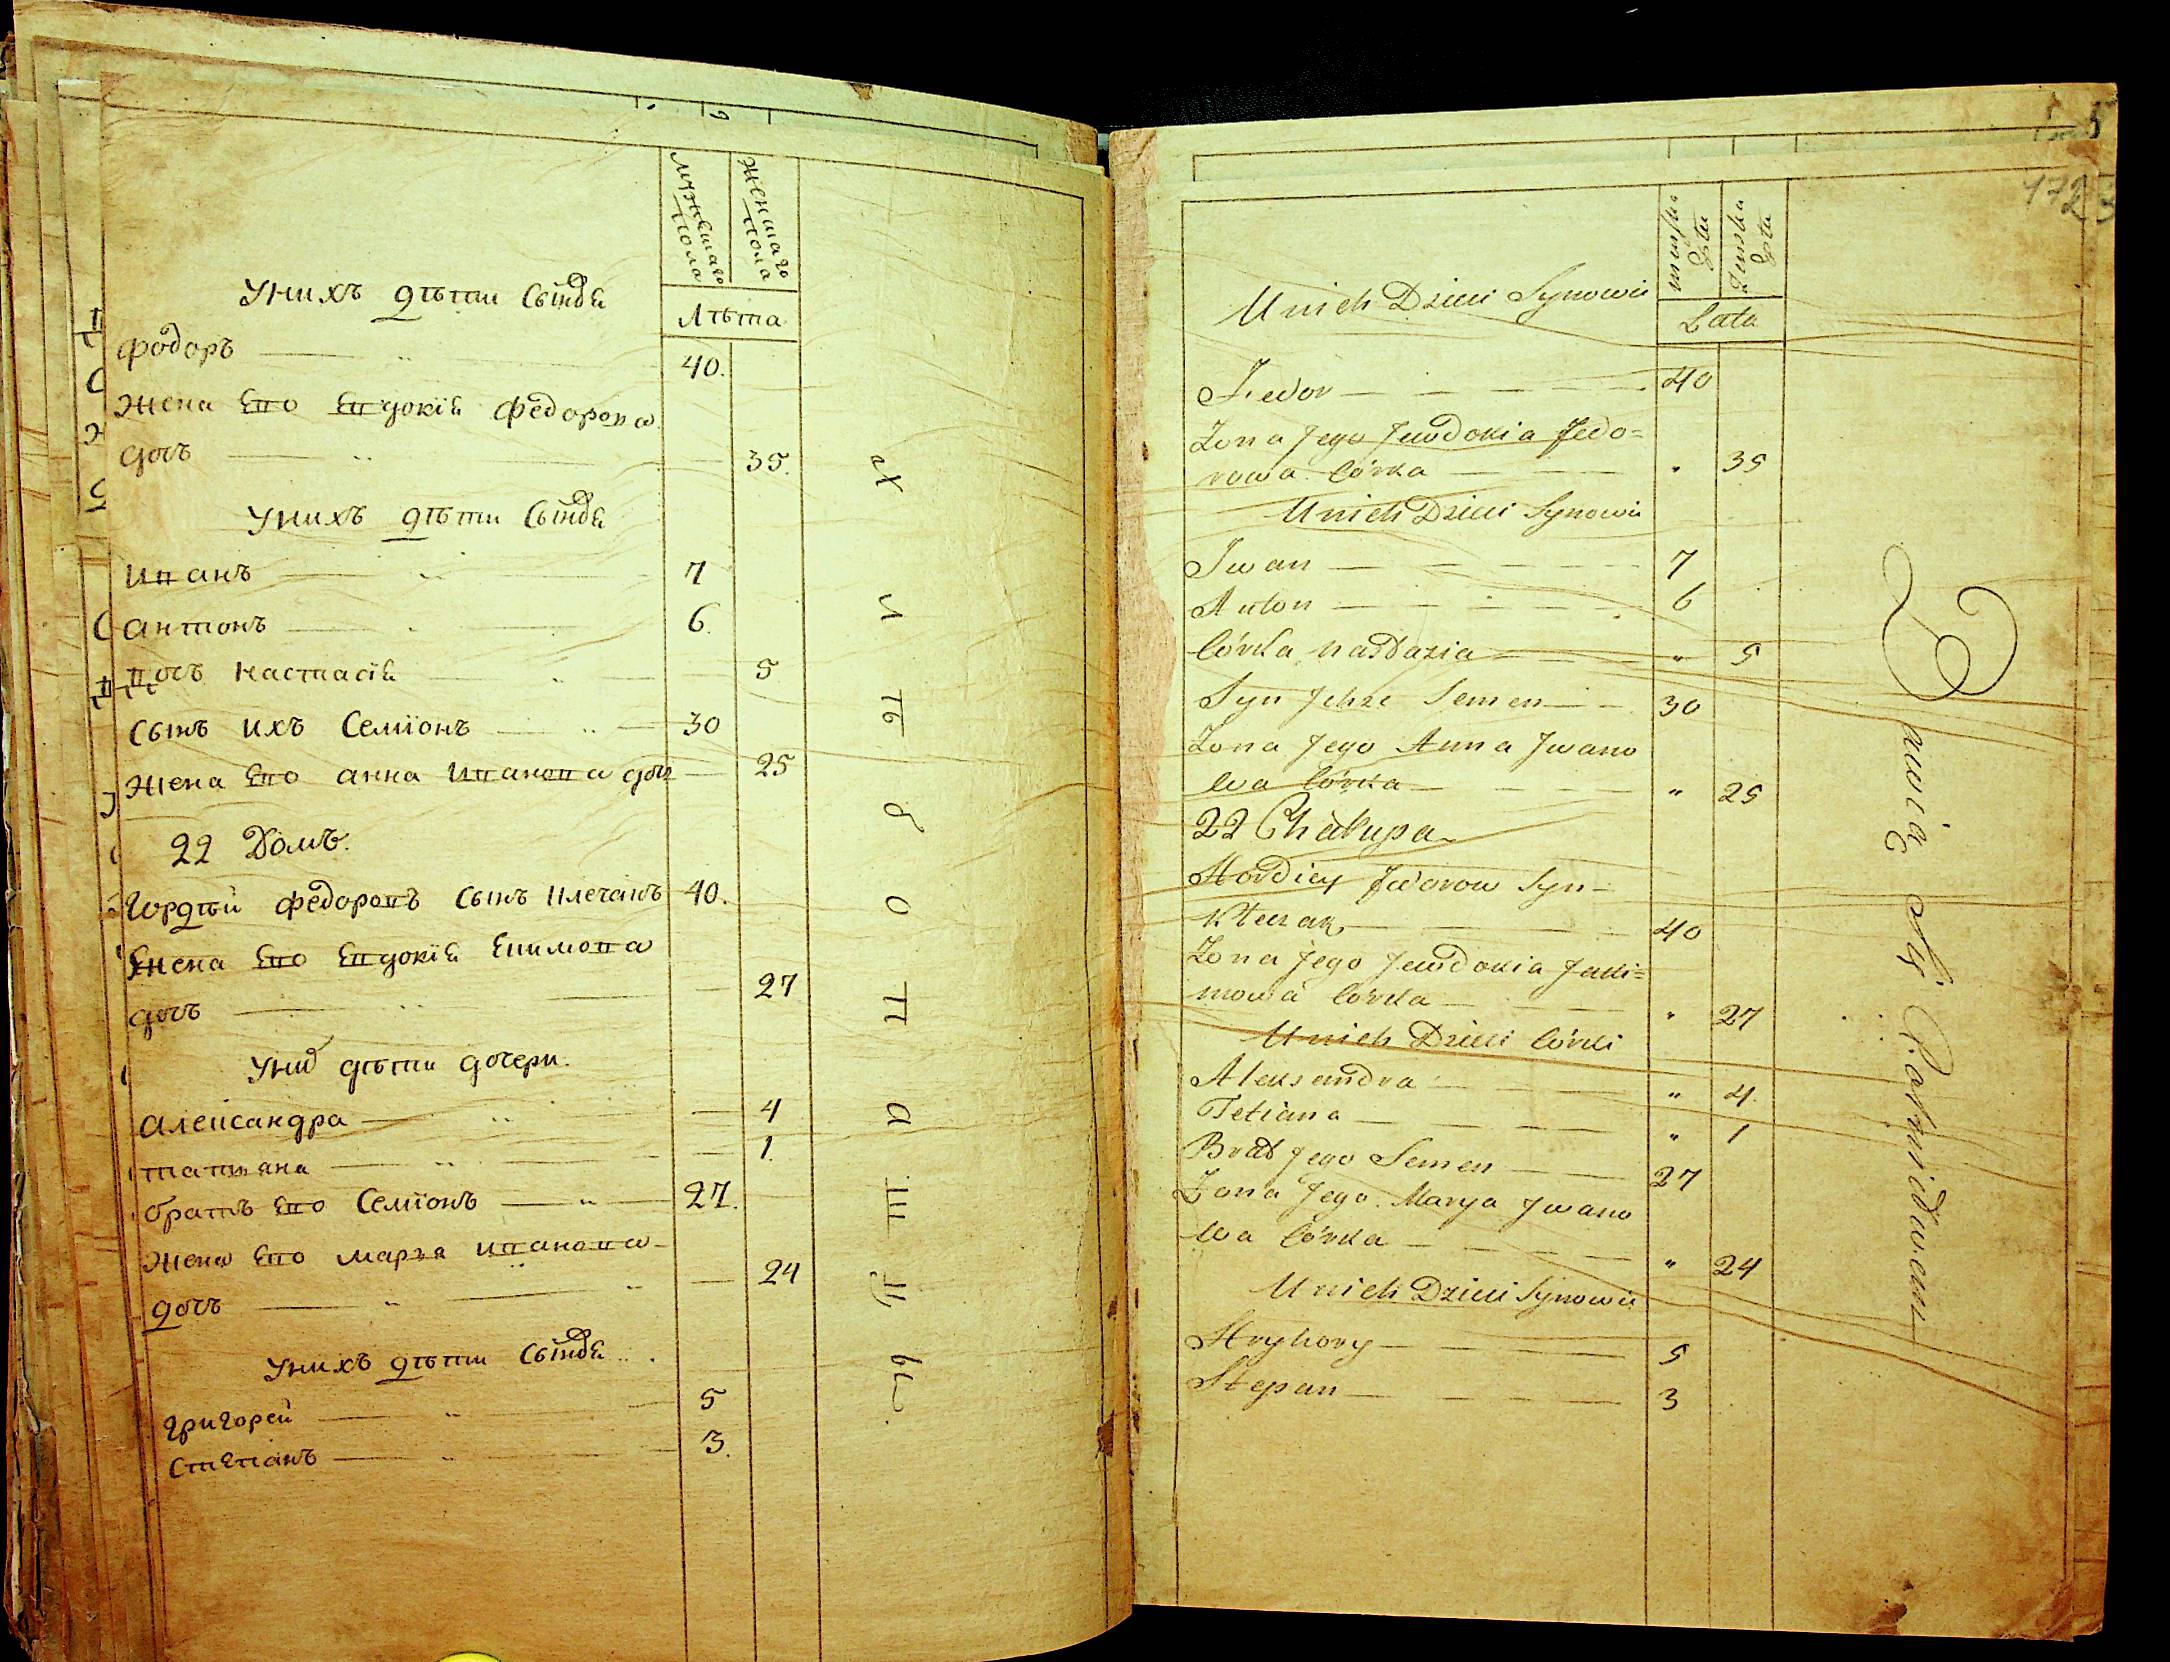 мужескаго пола
женскаго пола
Лѣта
У нихъ дѣти сыновѣ
Фодоръ 40.
Жена Ево Евдокіѣ Федорова
дочь 35.
У нихъ дѣти сыновѣ
Иванъ 7
Антонъ 6.
Дочь Настасіѣ 5
Сынъ ихъ Семіонъ 30
Жена Ево Анна Иванова дочь 25
22 Домъ.
Гордѣй Федоровъ сынъ 40.
Жена Ево Евдокіѣ Екимова
дочь 27
У них дѣти дочери.
Александра 4
Татьяна 1.
братъ Ево Семіонъ 27.
Жена Ево Марья Иванова
дочь 24
У нихъ дѣти сыновѣ
Григорей 5
Степанъ 3.
Хлѣбопашцы.
męska płeć
Żenska płeć
Lata
U nich Dzieci Synowie
Fedor 40
Żona Jego Jewdokia Fedo=
rowa Córka " 35
U nich Dzieci Synowie
Jwan 7
Anton 6
Córka Nastazia " 5
Syn Jchże Semen 30
Żona Jego Anna Jwano
wa Córka " 25
22 Chałupa
Hordiey Fedorow Syn
40
Żona Jego Jewdokia Jeki=
mowa Córka " 27
U nich Dzieci Córki
Aleksandra " 4.
Tetiana " 1
Brat Jego Semen 27
Żona Jego Marya Jwano
wa Córka " 24
U nich Dzieci Synowie
Hryhory 5
Stepan 3
Bawią się Rolnictwem